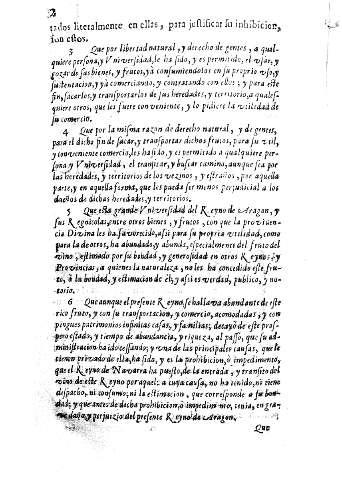 2
tados literalmente en ellas, para justificar su inhibicion,
son estos.
3 Que por libertad natural, y derecho de gentes, a qual-
quiere persona, y Vniversidad, le ha sido, y es permitido, el vsar, y
gozar de sus bienes, y frutos, yà consumiendolos en su proprio vso, y
sustentacion, y yà comerciando, y contratando con ellos; y para este
fin, sacarlos, y transportarlos de sus heredades, y territorio, a quales-
quiere otros, que les fuere conveniente, y lo pidiere la vtilidad de
su comercio.
4 Que por la misma razon de derecho natural, y de gentes,
para el dicho fin de sacar, y transportar dichos frutos, para su vtil,
y conveniente comercio, les ha sido, y es permitido a qualquiere per-
sona, y Vniversidad, el transitar, y buscar camino, aunque sea por
las heredades, y territorios de los vezinos, y estraños, por aquella
parte, y en aquella forma, que les pueda ser menos perjudicial a los
dueños de dichas heredades, y territorios.
5 Que esta grande Vniversidad del Reyno de Aragon, y
sus Regnicolas, entre otros bienes, y frutos, con que la providen-
cia Divina les ha favorecido, assi para su propria vtilidad, como
para la de otros, ha abundado, y abunda, especialmente del fruto del
vino, estimado por su bondad, y generosidad en otros Reynos, y
Provincias, a quienes la naturaleza, no les ha concedido este fru-
to, ò la bondad, y estimacion de èl, y assi es verdad, publico, y no-
torio.
6 Que aunque el presente Reyno, se hallava abundante de este
rico fruto, y con su transportacion, y comercio, acomodadas, y con
pingues patrimonios infinitas casas, y familias; decayò de este pros-
pero estado, y tiempo de abundancia, y riqueza, al passo, que su ad-
ministracion ha ido cessando; y vna de las principales causas, que le
tienen privado de ella, ha sido, y es la prohibicion, ò impedimento,
que el Reyno de Navarra ha puesto, de la entrada, y transito del
vino de este Reyno por aquel: a cuya causa, no ha tenido, ni tiene
despacho, ni consumo, ni la estimacion, que corresponde a su bon-
dad; y que antes de dicha prohibicion, ò impedimento, tenia, en gra-
ve daño, y perjuizio del presente Reyno de Aragon.
Que